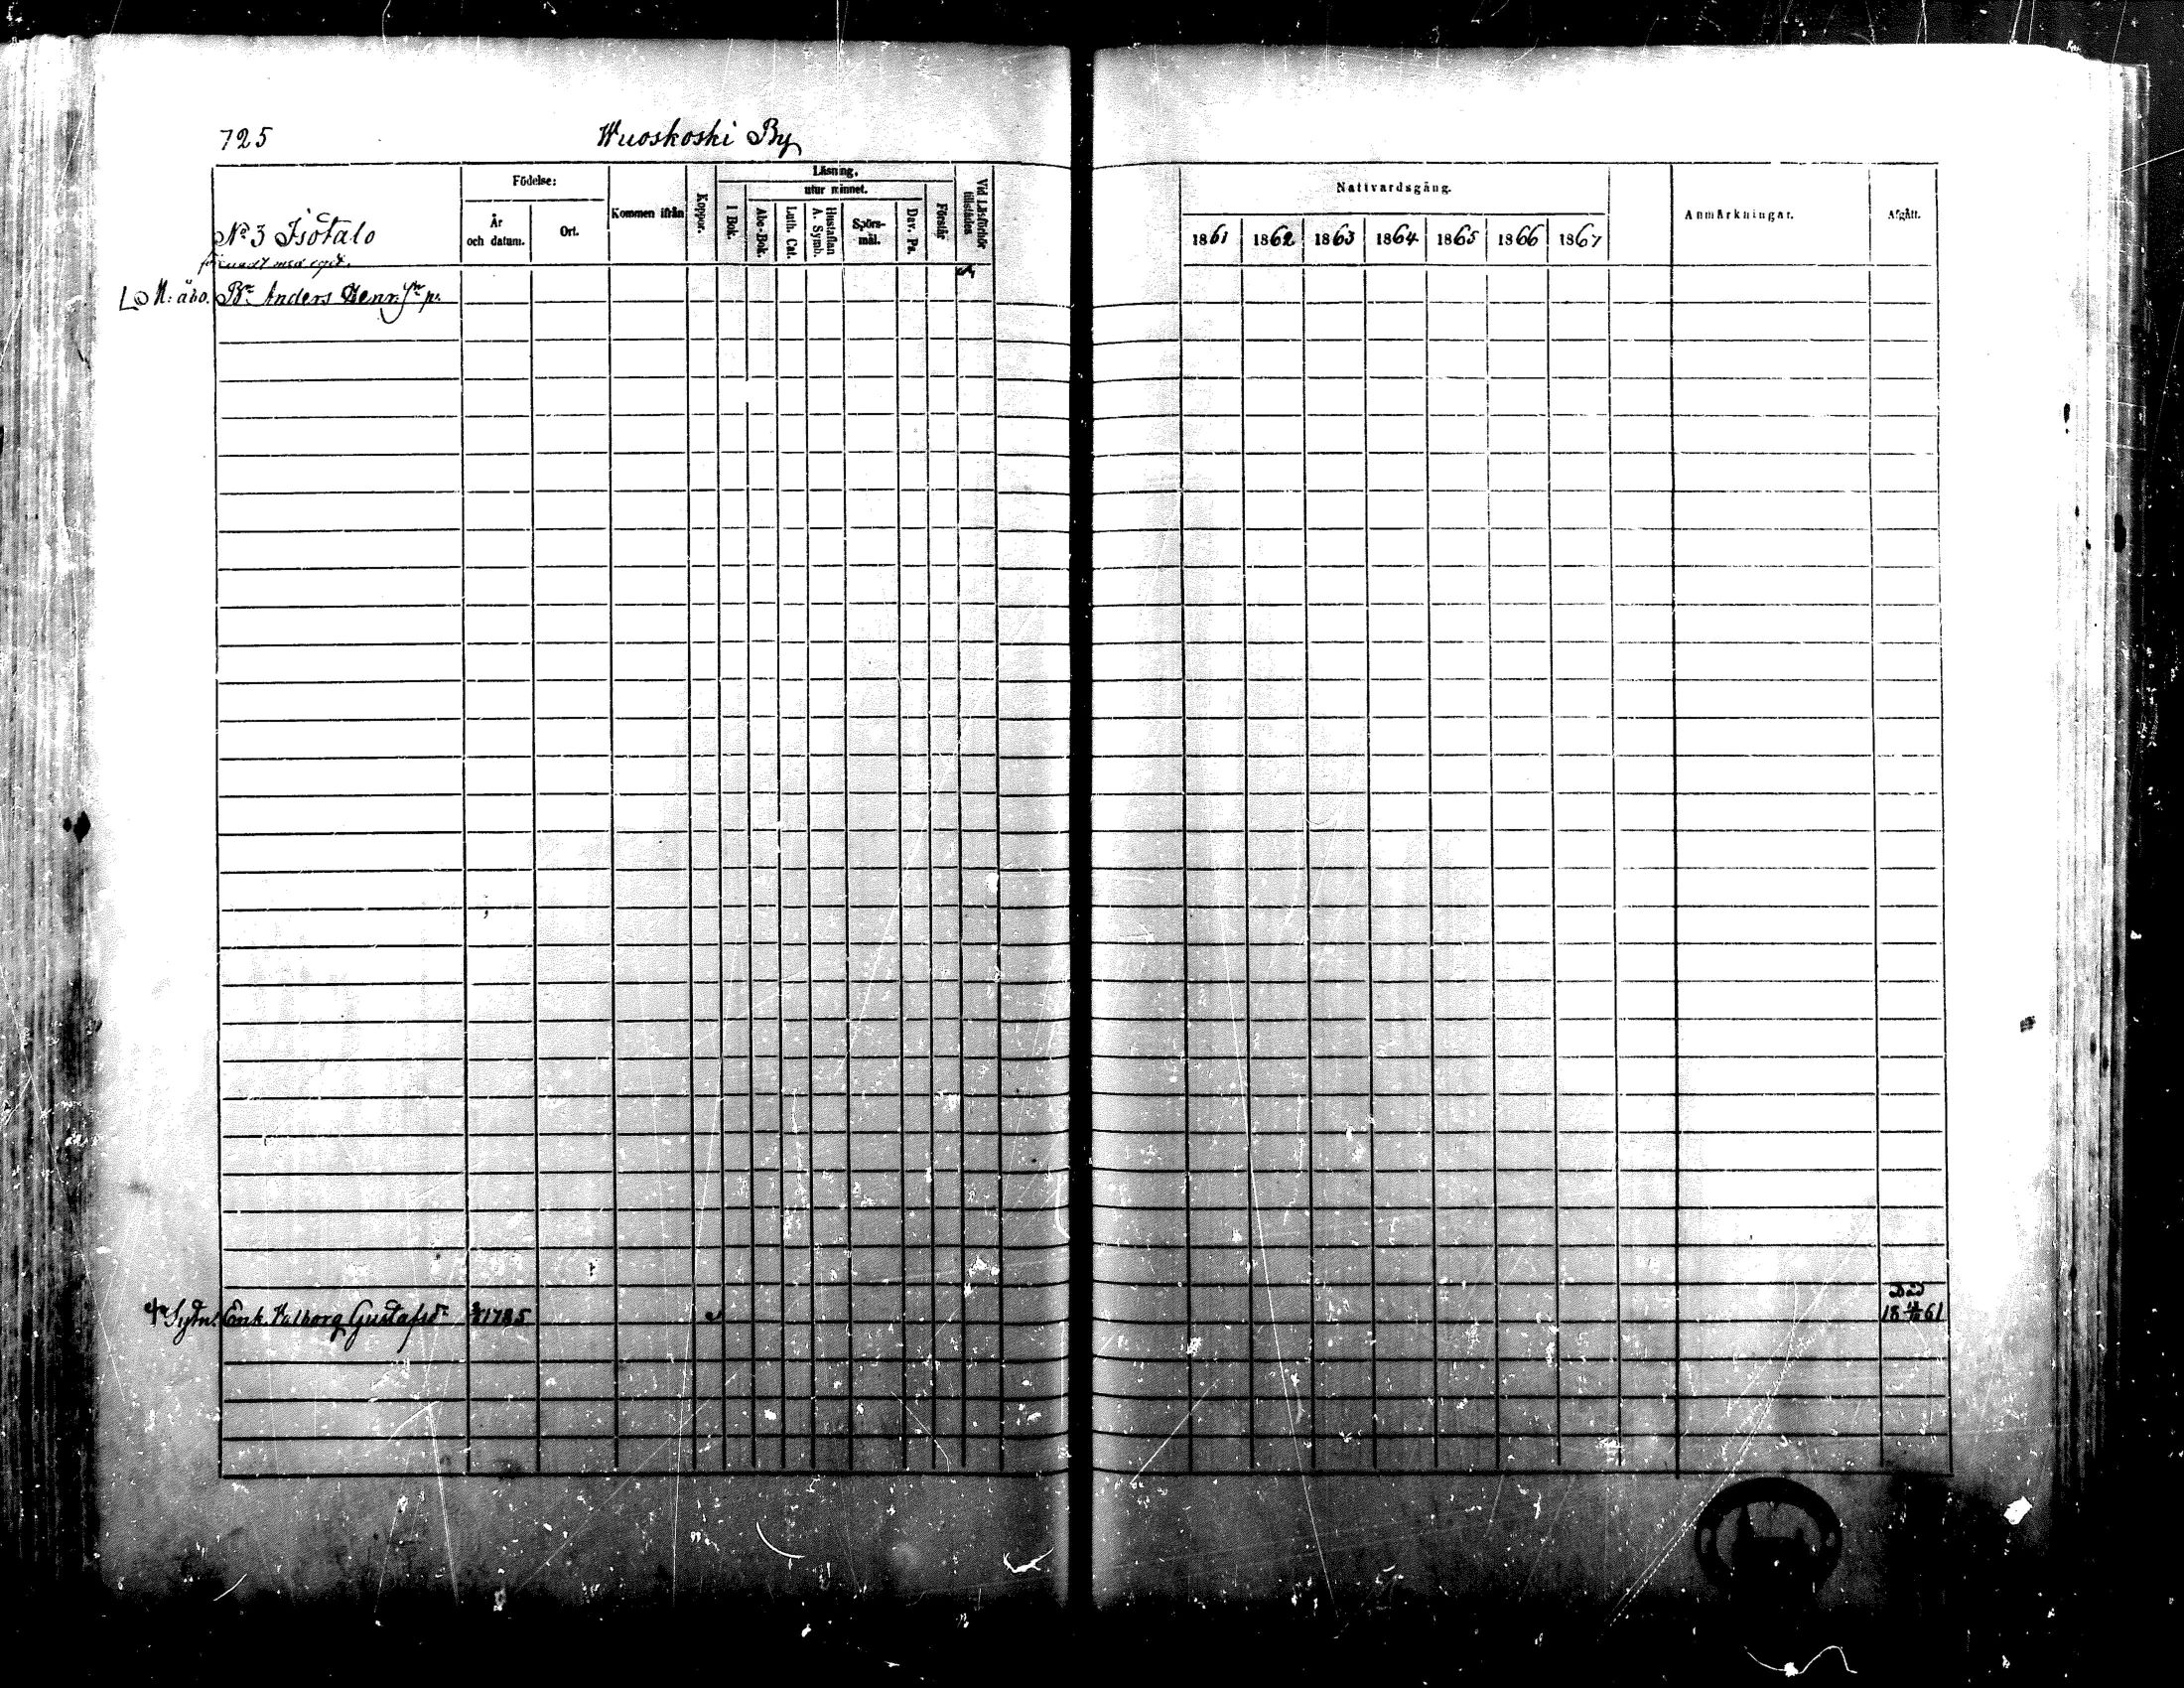 725 Wuoskoski By
Födelse: Kommen ifrån Koppor. Läsning. Vid Läsförhör tillstädes
År och datum. Ort. I Bok. utur minnet. Förstår
Abc-Bok. Luth. Cat. Hustaflan A. Symb. Spörs-mål. Dav. Ps.
Nattvardsgång. Anmärkningar. Afgått.
1861 1862 1863 1864 1865 1866 1867
No 3 Isotalo
med
åbo. Bn Anders Henr.
Sytn: Enk. Valborg Gustafsdr 1785
Död
18 61